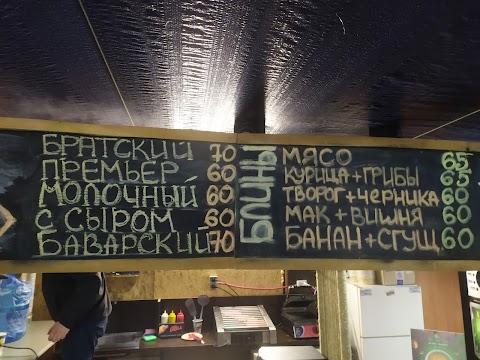 БРАТСКИЙ 70
ПРЕМЬЕР 60
МОЛОЧНЫЙ 60
С СЫРОМ 60
БАВАРСКИЙ 70
БЛИНЫ
МЯСО 65
КУРИЦА+ГРИБЫ 65
ТВОРОГ+ЧЕРНИКА 60
МАК+ВИШНЯ 60
БАНАН+СГУЩ 60